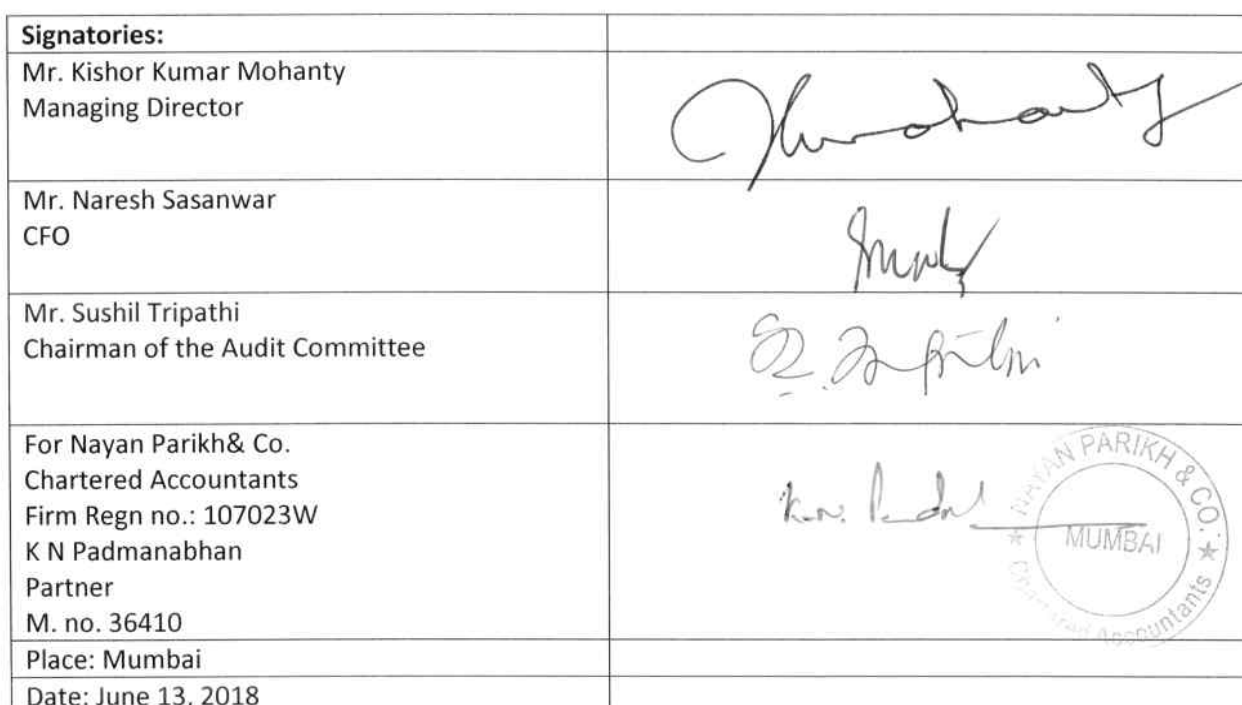 Signatories:
Mr. Kishor Kumar Mohanty
Managing Director
Mr. Naresh Sasanwar
CFO
Mr. Sushil Tripathi
Chairman of the Audit Committee
For Nayan Parikh& Co.
Chartered Accountants
Firm Regn no.: 107023W
K N Padmanabhan
Partner
M. no. 36410
K.N.
NAYAN PARIKH & CO.
MUMBAI
Chartered Accountants
Place: Mumbai
Date: June 13, 2018